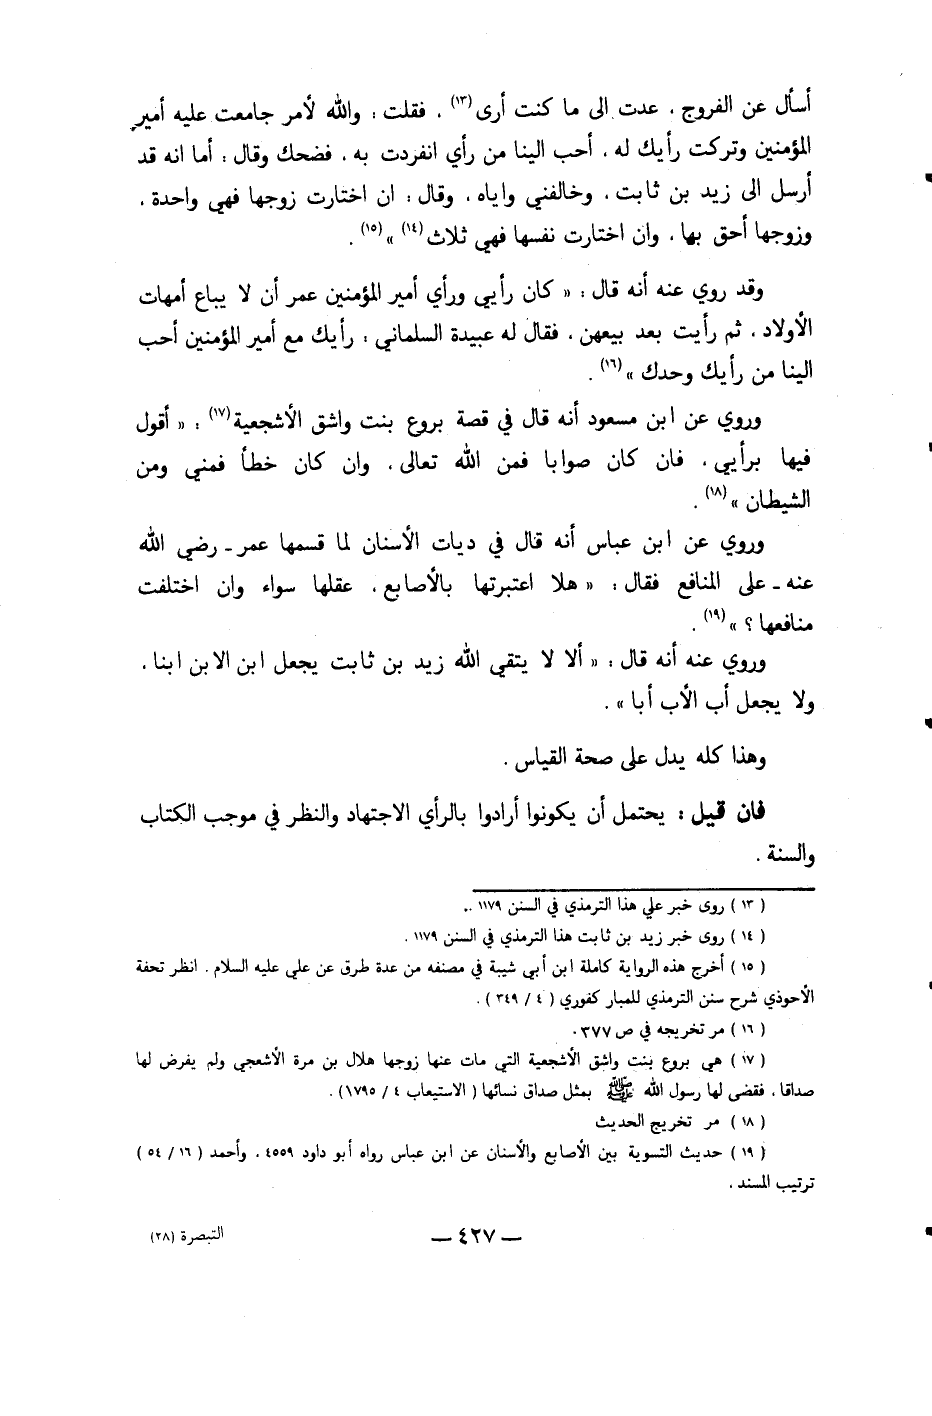 أسأل عن الفروج ، عدت الى ما كنت أرى(١٣) ، فقلت : والله لأمر جامعت عليه أمير
المؤمنين وتركت رأيك له ، أحب الينا من رأي انفردت به ، فضحك وقال : أما انه قد
أرسل الى زيد بن ثابت ، وخالفني واياه ، وقال : ان اختارت زوجها فهي واحدة ،
وزوجها أحق بها ، وان اختارت نفسها فهي ثلاث(١٤) »(١٥) .
وقد روي عنه أنه قال : « كان رأيي ورأي أمير المؤمنين عمر أن لا يباع أمهات
الأولاد ، ثم رأيت بعد بيعهن ، فقال له عبيدة السلماني : رأيك مع أمير المؤمنين أحب
الينا من رأيك وحدك »(١٦) .
وروي عن ابن مسعود أنه قال في قصة بروع بنت واشق الأشجعية(١٧) : « أقول
فيها برأيي ، فان كان صوابا فمن الله تعالى ، وان كان خطأ فمني ومن
الشيطان »(١٨) .
وروي عن ابن عباس أنه قال في ديات الأسنان لما قسمها عمر ـ رضي الله
عنه ـ على المنافع فقال : « هلا اعتبرتها بالأصابع ، عقلها سواء وان اختلفت
منافعها ؟ »(١٩) .
وروي عنه أنه قال : « ألا لا يتقي الله زيد بن ثابت يجعل ابن الابن ابنا ،
ولا يجعل أب الأب أبا » .
وهذا كله يدل على صحة القياس .
فان قيل : يحتمل أن يكونوا أرادوا بالرأي الاجتهاد والنظر في موجب الكتاب
والسنة .
( ١٣ ) روى خبر علي هذا الترمذي في السنن ١١٧٩ .
( ١٤ ) روى خبر زيد بن ثابت هذا الترمذي في السنن ١١٧٩ .
( ١٥ ) أخرج هذه الرواية كاملة ابن أبي شيبة في مصنفه من عدة طرق عن علي عليه السلام . انظر تحفة
الأحوذي شرح سنن الترمذي للمبار كفوري ( ٤ / ٣٤٩ ) .
( ١٦ ) مر تخريجه في ص ٣٧٧ .
( ١٧ ) هي بروع بنت واشق الأشجعية التي مات عنها زوجها هلال بن مرة الأشعجي ولم يفرض لها
صداقا ، فقضى لها رسول الله ﷺ بمثل صداق نسائها ( الاستيعاب ٤ / ١٧٩٥ ) .
( ١٨ ) مر تخريج الحديث
( ١٩ ) حديث التسوية بين الأصابع والأسنان عن ابن عباس رواه أبو داود ٤٥٥٩ ، وأحمد ( ١٦ / ٥٤ )
ترتيب المسند .
ـ ٤٢٧ ـ
التبصرة (٢٨)